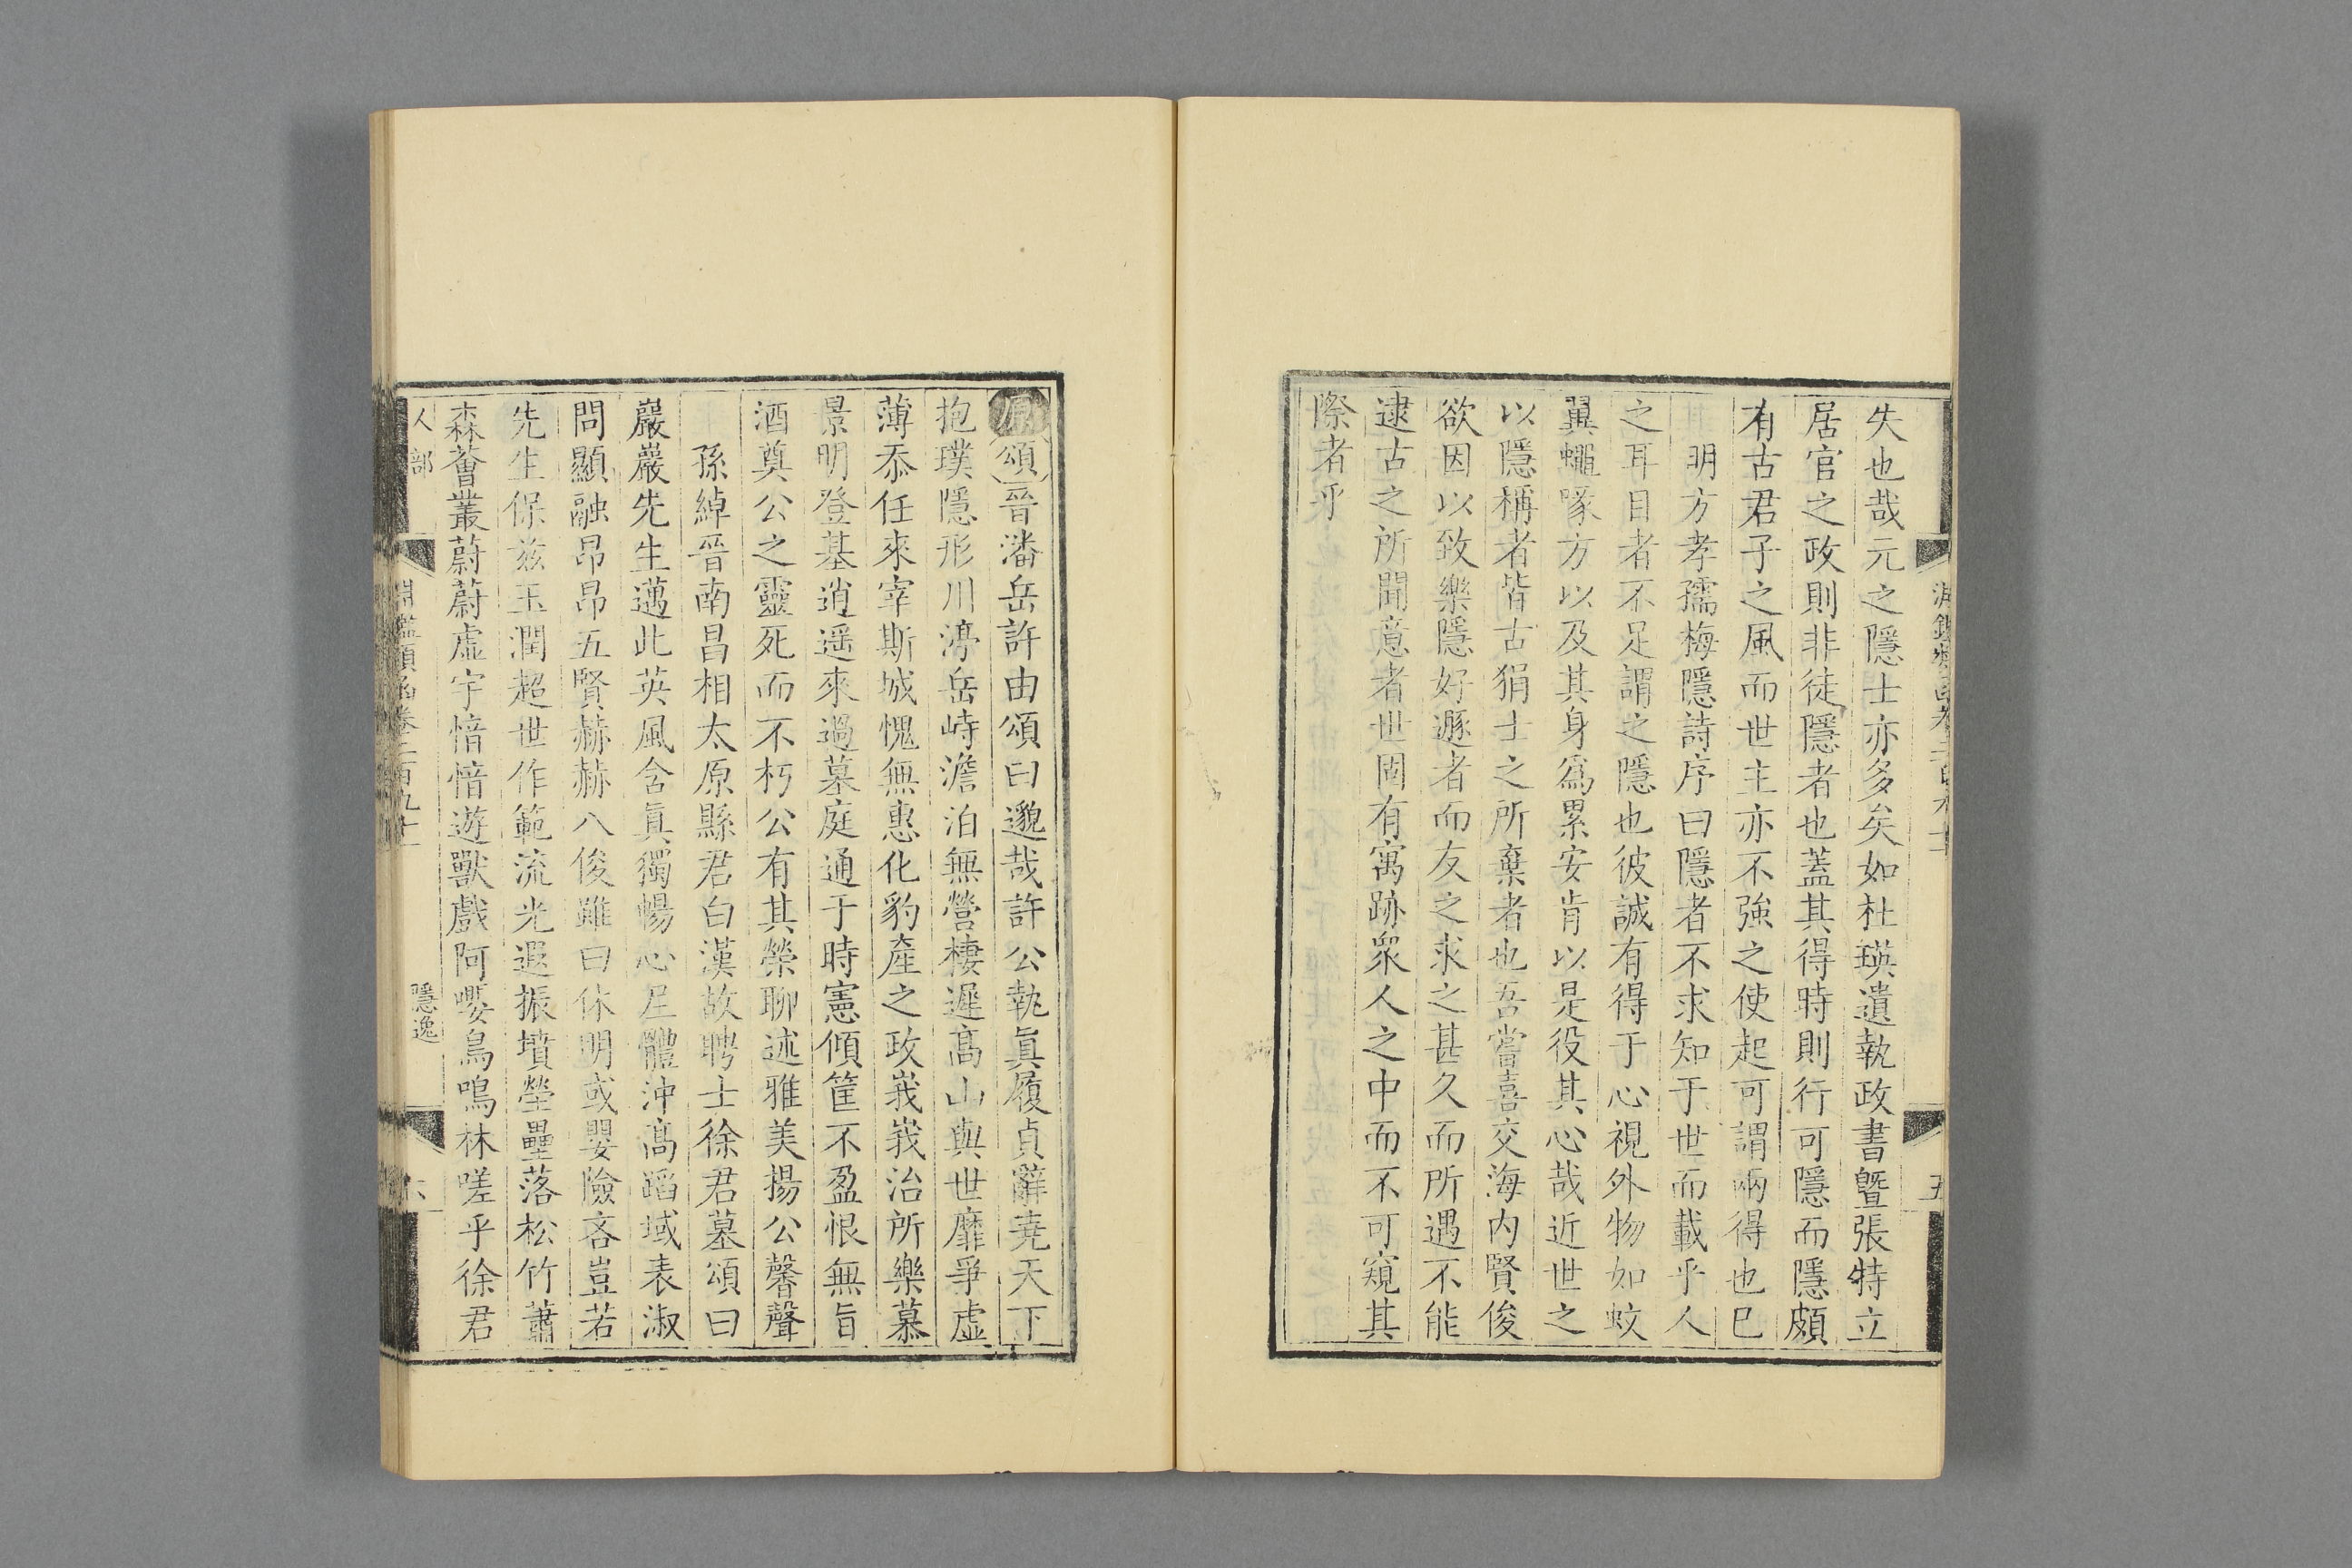 失也哉元之隱士亦多矣如杜瑛遺執政書曁張特立
居官之政則非徒隱者也蓋其得時則行可隱而隱頗
有古君子之風而世主亦不強之使起可謂兩得也巳
明方孝孺梅隱詩序曰隱者不求知于世而載乎人
之耳目者不足謂之隱也彼誠有得于心視外物如蚊
翼蠅喙方以及其身爲累安肯以是役其心哉近世之
以隱稱者皆古狷士之所棄者也吾嘗喜交海内賢俊
欲因以致樂隱好遯者而友之求之甚久而所遇不能
逮古之所聞意者世固有寓跡衆人之中而不可窺其
際者乎
原頌晉潘岳許由頌曰邈哉許公執眞履貞辭堯天下
抱璞隱形川渟岳峙澹泊無營棲遲高山與世靡爭虛
薄忝任來宰斯城愧無惠化豹產之政峩峩治所樂慕
景明登基逍遥來過墓庭通于時憲傾筐不盈恨無旨
酒奠公之靈死而不朽公有其榮聊述雅美揚公馨聲
孫綽晉南昌相太原縣君白漢故聘士徐君墓頌曰
巖巖先生邁此英風含眞獨暢心足體沖高蹈域表淑
問顯融昂昂五賢赫赫八俊雖曰休明或嬰險吝豈若
先生保兹玉潤超世作範流光遐振墳塋壘落松竹蕭
森薈叢蔚蔚虛宇愔愔遊獸戲阿嚶鳥鳴林嗟乎徐君
人部
淵鑑類函卷二百九十
隱逸
六